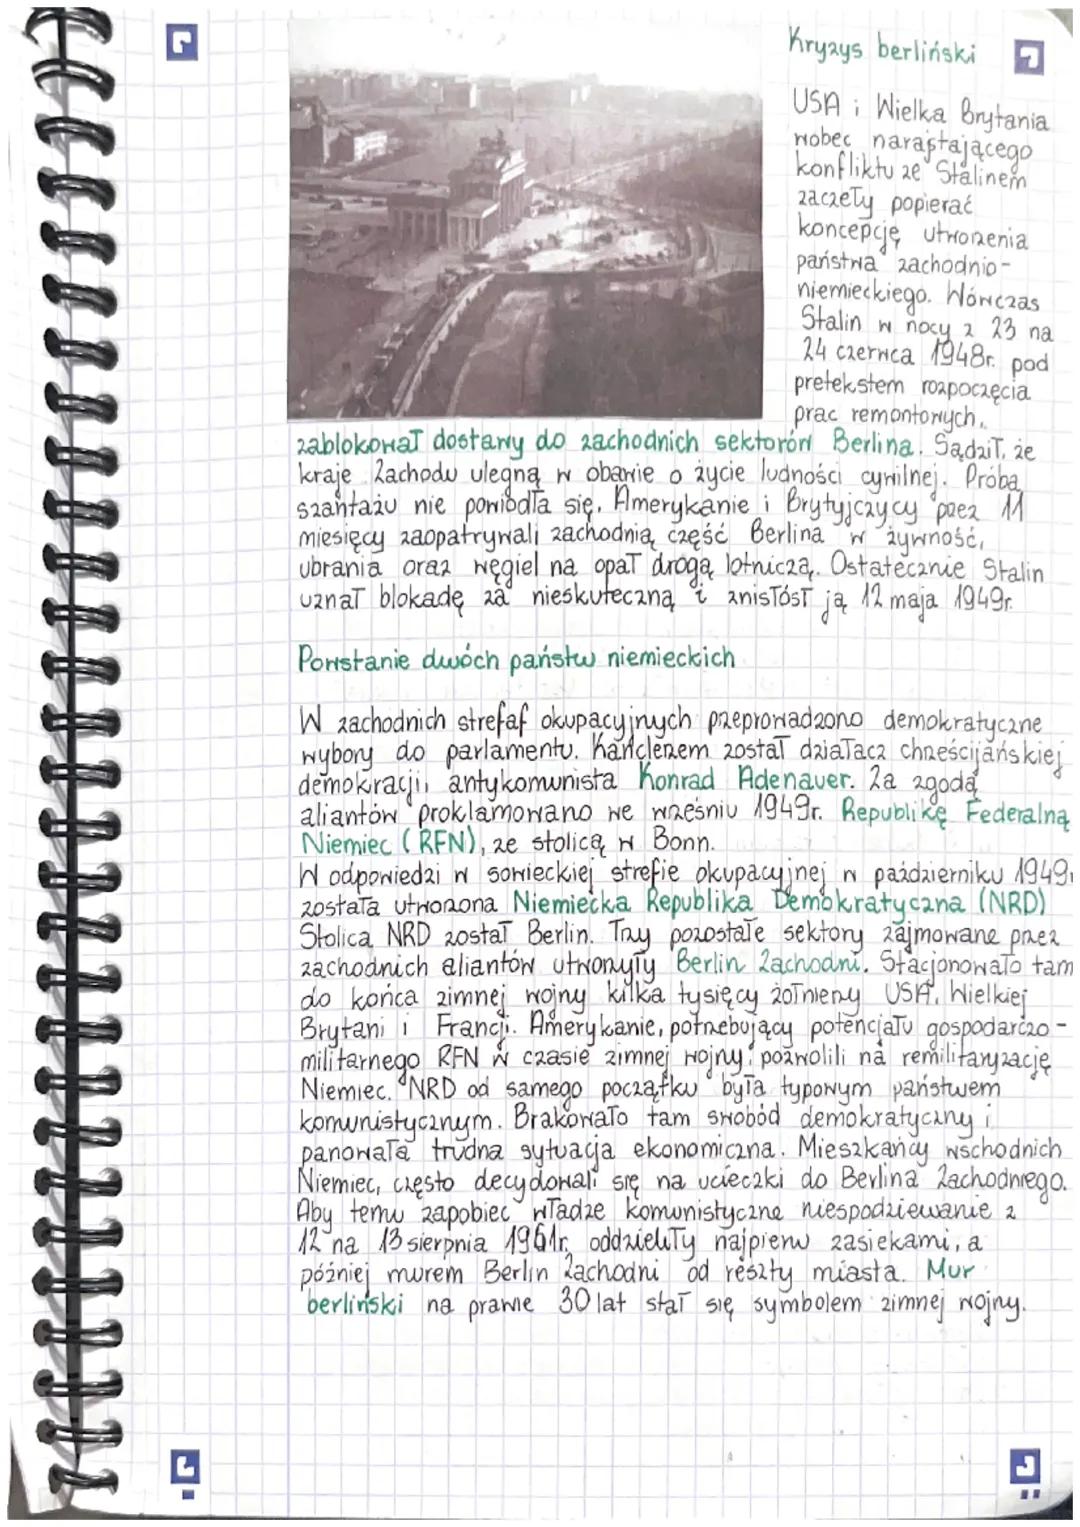 Kryzys berliński
USA i Wielka Brytania
wobec narastającego
konfliktu ze Stalinem
zaczeły popierać
koncepcję utworzenia
państwa zachodnio-
niemieckiego. Wówczas
Stalin w nocy z 23 na
24 czerwca 1948r. pod
pretekstem rozpoczęcia
prac remontowych,
zablokował dostawy do zachodnich sektorów Berlina. Sądził, że
kraje Zachodu ulegną w obawie o życie ludności cywilnej. Próba
szantażu nie powiodła się. Amerykanie i Brytyjczycy przez 11
miesięcy zaopatrywali zachodnią część Berlina w żywność,
ubrania oraz węgiel na opał drogą lotniczą. Ostatecznie Stalin
uznał blokadę za nieskuteczną i zniósł ją 12 maja 1949r.
Powstanie dwóch państw niemieckich
W zachodnich strefaf okupacyjnych przeprowadzono demokratyczne
wybory do parlamentu. Kanclerzem został działacz chrześcijańskiej
demokracji, antykomunista Konrad Adenauer. Za zgodą
aliantów proklamowano we wrześniu 1949r. Republikę Federalną
Niemiec (RFN), ze stolicą w Bonn.
W odpowiedzi w sowieckiej strefie okupacyjnej w październiku 1949r
została utworzona Niemiecka Republika Demokratyczna (NRD)
Stolicą NRD został Berlin. Trzy pozostałe sektory zajmowane przez
zachodnich aliantów utworzyły Berlin Zachodni. Stacjonowało tam
do końca zimnej wojny kilka tysięcy żołnierzy USA, Wielkiej
Brytani i Francji. Amerykanie, potrzebujący potencjału gospodarczo-
militarnego RFN w czasie zimnej wojny, pozwolili na remilitaryzację
Niemiec. NRD od samego początku była typowym państwem
komunistycznym. Brakowało tam swobód demokratyczny i
panowała trudna sytuacja ekonomiczna. Mieszkańcy wschodnich
Niemiec, często decydowali się na ucieczki do Berlina Zachodniego.
Aby temu zapobiec władze komunistyczne niespodziewanie z
12 na 13 sierpnia 1961r. oddzieliły najpierw zasiekami, a
później murem Berlin Zachodni od reszty miasta. Mur
berliński na prawie 30 lat stał się symbolem zimnej wojny.